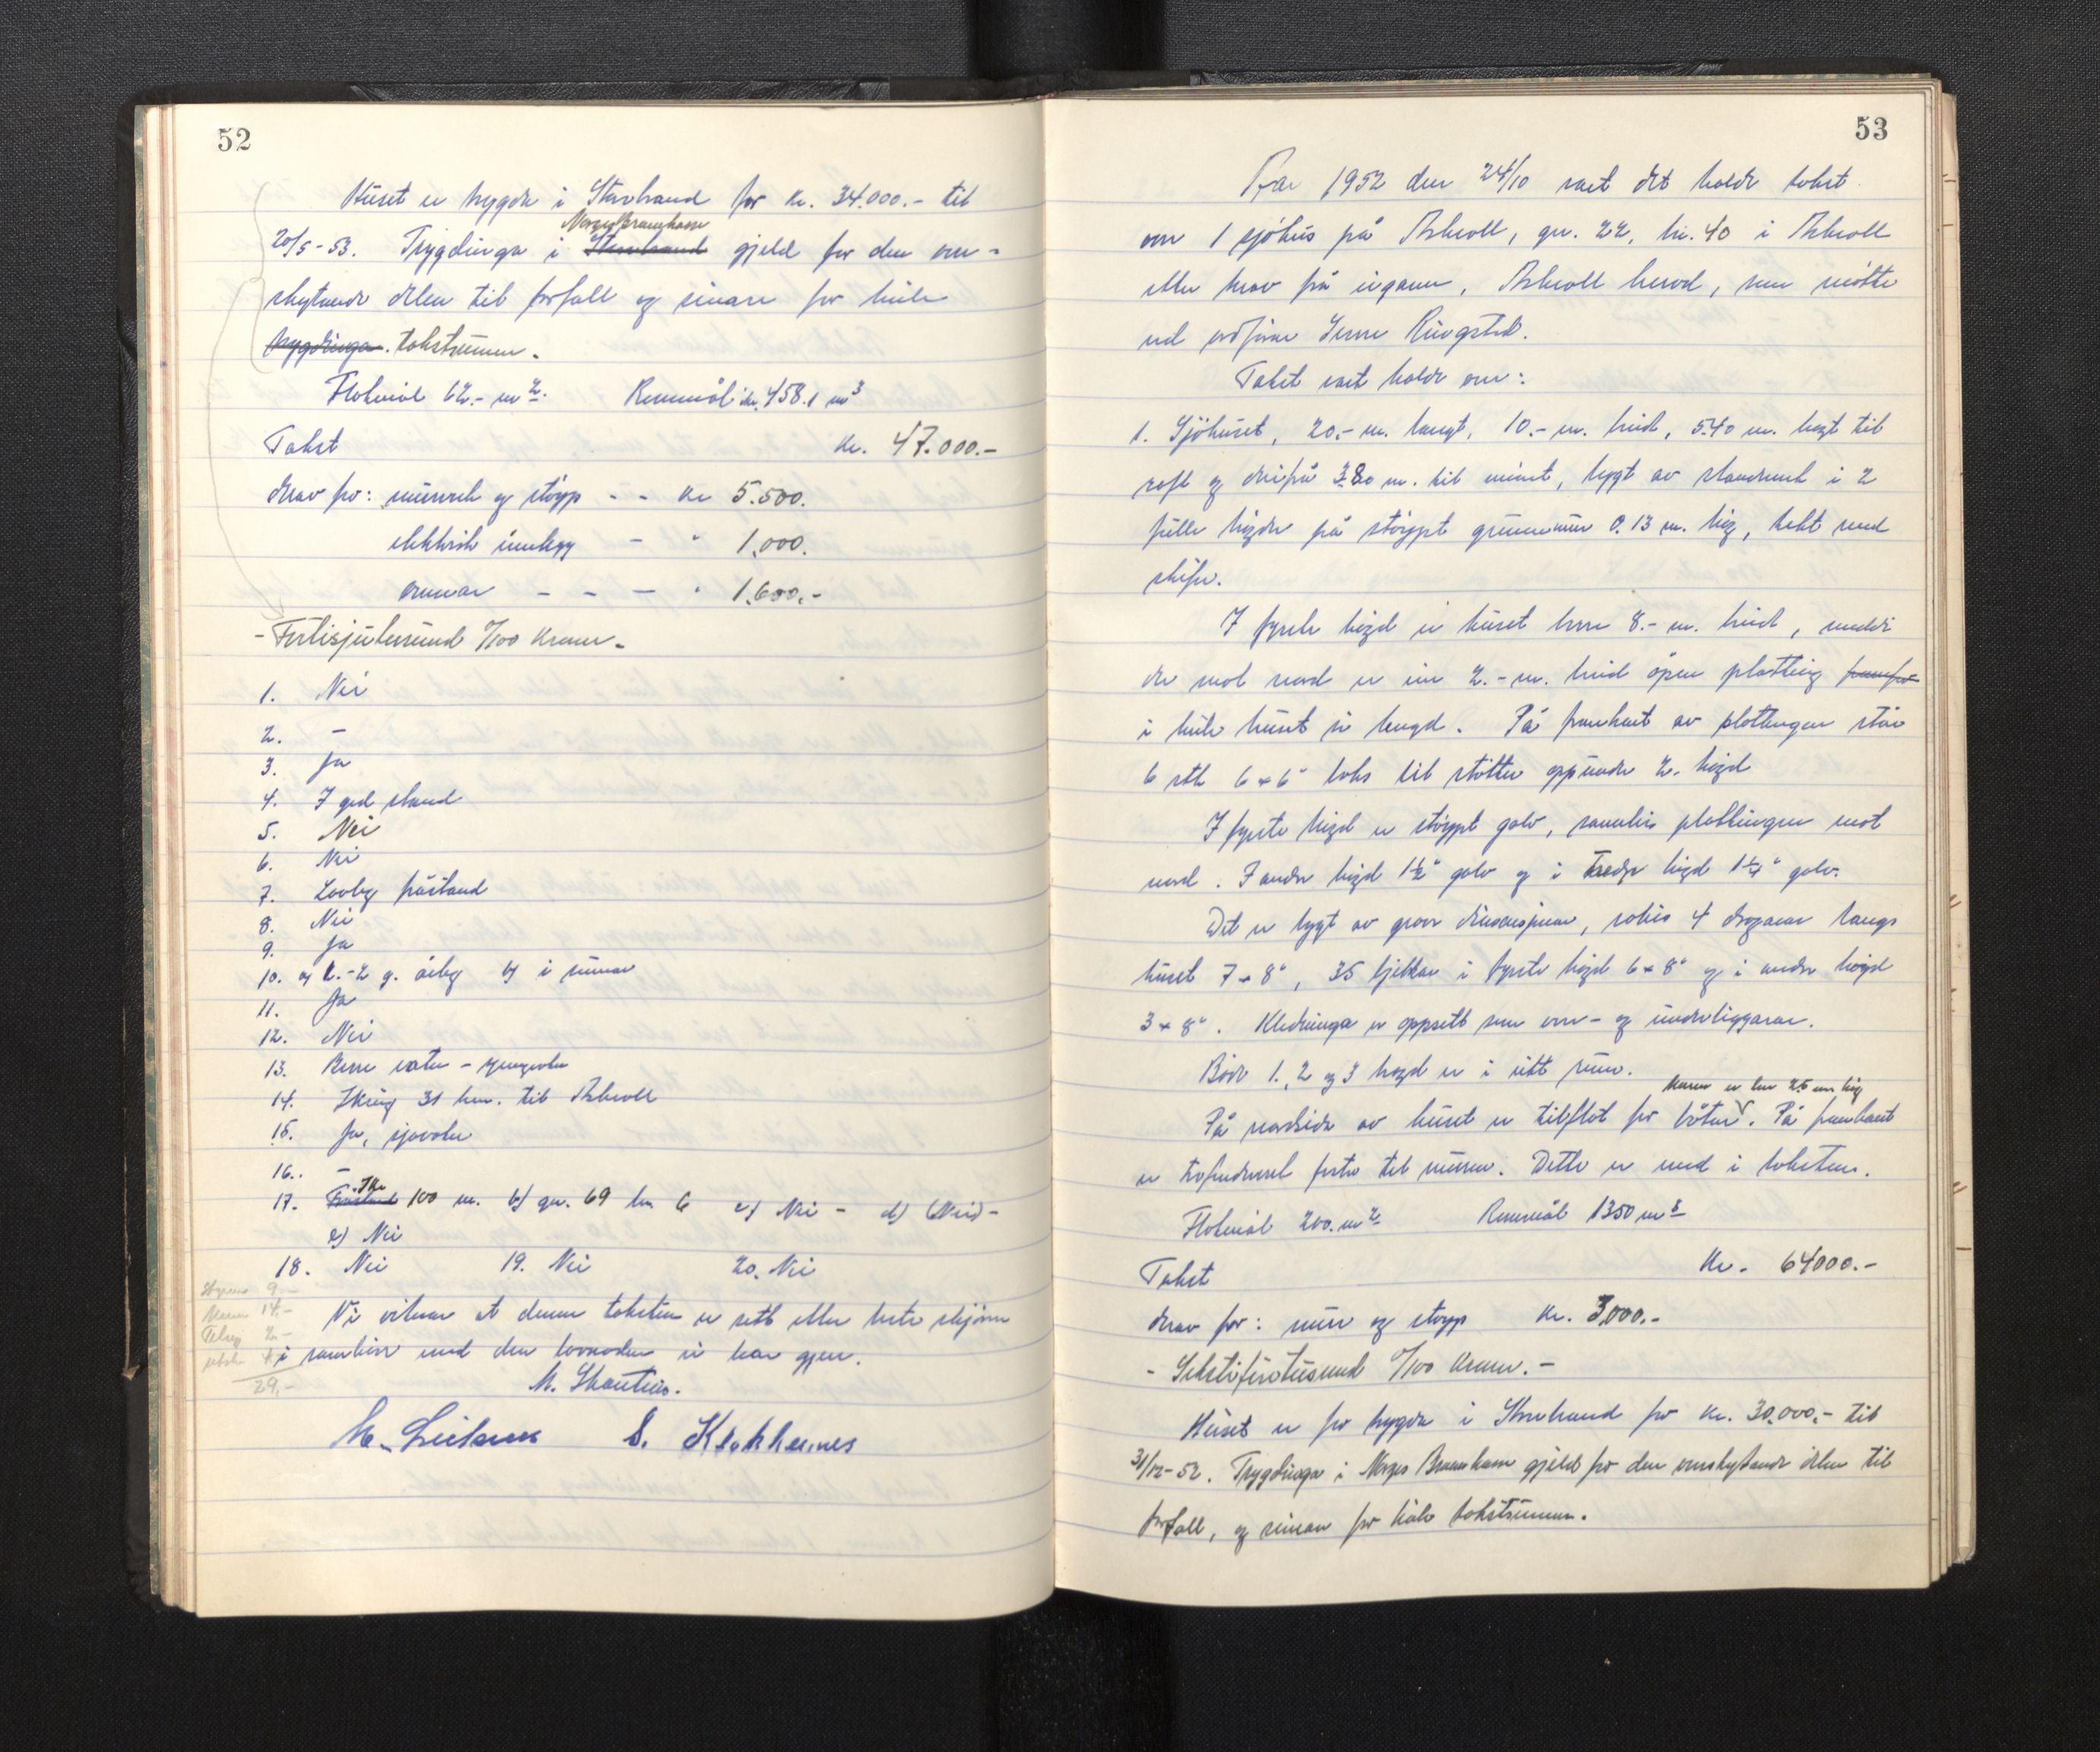 52
Huset er trygda i Storebrand for kr. 34.000.- til
Norges Brannkasse
20/5-53. Trygdinga i Storebrand gjeld for den over-
skytande delen til forfall og sidan for heile
trygdinga. takstsummen.
Flatemål 62.- m². Rommål kr. 458.1 m³
Takst kr. 47.000.-
Herav for: murverk og støyp - - kr 5.500.
elektrisk innlegg - " 1.000.
omnar - - - " 1.600.-
- Førtisjutusund 0/100 kroner -
1. Nei
2. -
3. Ja
4. I god stand
5. Nei
6. Nei
7. Lovleg tilstand
8. Nei
9. Ja
10. a) 1.-2 g. årleg b) i
11. Ja
12. Nei
13. Berre vatn -
14. Ikring 31 km. til Askvoll
15. Ja, sjøvatn
16. -
Ikr.
17. 100 m. b) gn. 69 bn 6 c) Nei - d) (Nei) -
e) Nei
18. Nei 19. Nei 20. Nei
9.-
14.-
2.-
4
29,-
Vi vitnar at denne taksten er sett etter beste skjønn
i samhøve med den lovnaden vi har gjeve.
M. Skautun.
S. Klokkernes
53
År 1952 den 24/10 vart det halde takst
over 1 sjøhus på Askvoll, gn. 22, bn. 40 i Askvoll
etter krav frå eigaren, Askvoll herad, som møtte
ved ordførar Ringstad.
Takst vart halde over:
1. Sjøhuset, 20.- m. langt, 10.- m. breidt, 5.40 m. høgt til
raft og derifrå 3.80 m. til mønet, bygt av standverk i 2
fulle høgder på støypt grunnmur 0.13 m. høg, tekt med
skifer.
I fyrste høgd er huset berre 8.- m. breidt, medan
der mot nord er ein 2.- m. breid open platting framfor
i heile huset si lengd. På framkant av plattingen står
6 stk 6 × 6" boks til støtter oppunder 2. høgd
I fyrste høgd er støypt golv, samleis plattingen mot
nord. I andre høgd 1½" golv og i tredje høgd 1¼" golv.
Det er bygt av grove dimensjonar, soleis 4 dragarar langs
huset 7 × 8", 35 bjelkar i fyrste høgd 6 × 8" og i andre høgd
3 × 8". Kledninga er oppsett som over- og underliggarar.
Både 1., 2 og 3 høgd er i eitt rom.
muren er her 2.5 m høg
På nordsida av huset er tilflot for båtar. På framkant
er trefendverk festa til muren. Dette er med i taksten.
Flatemål 200. m² Rommål 1350 m³
Takst Kr. 64000.-
Herav for: mur og støyp kr. 3.000.-
- Sekstifiretusund 0/100 kroner. -
Huset er før trygda i Storebrand for kr. 30.000.- til
31/12-52. Trygdinga i Norges Brannkasse gjeld for den overskytande delen til
forfall, og sidan for heile takstsummen.